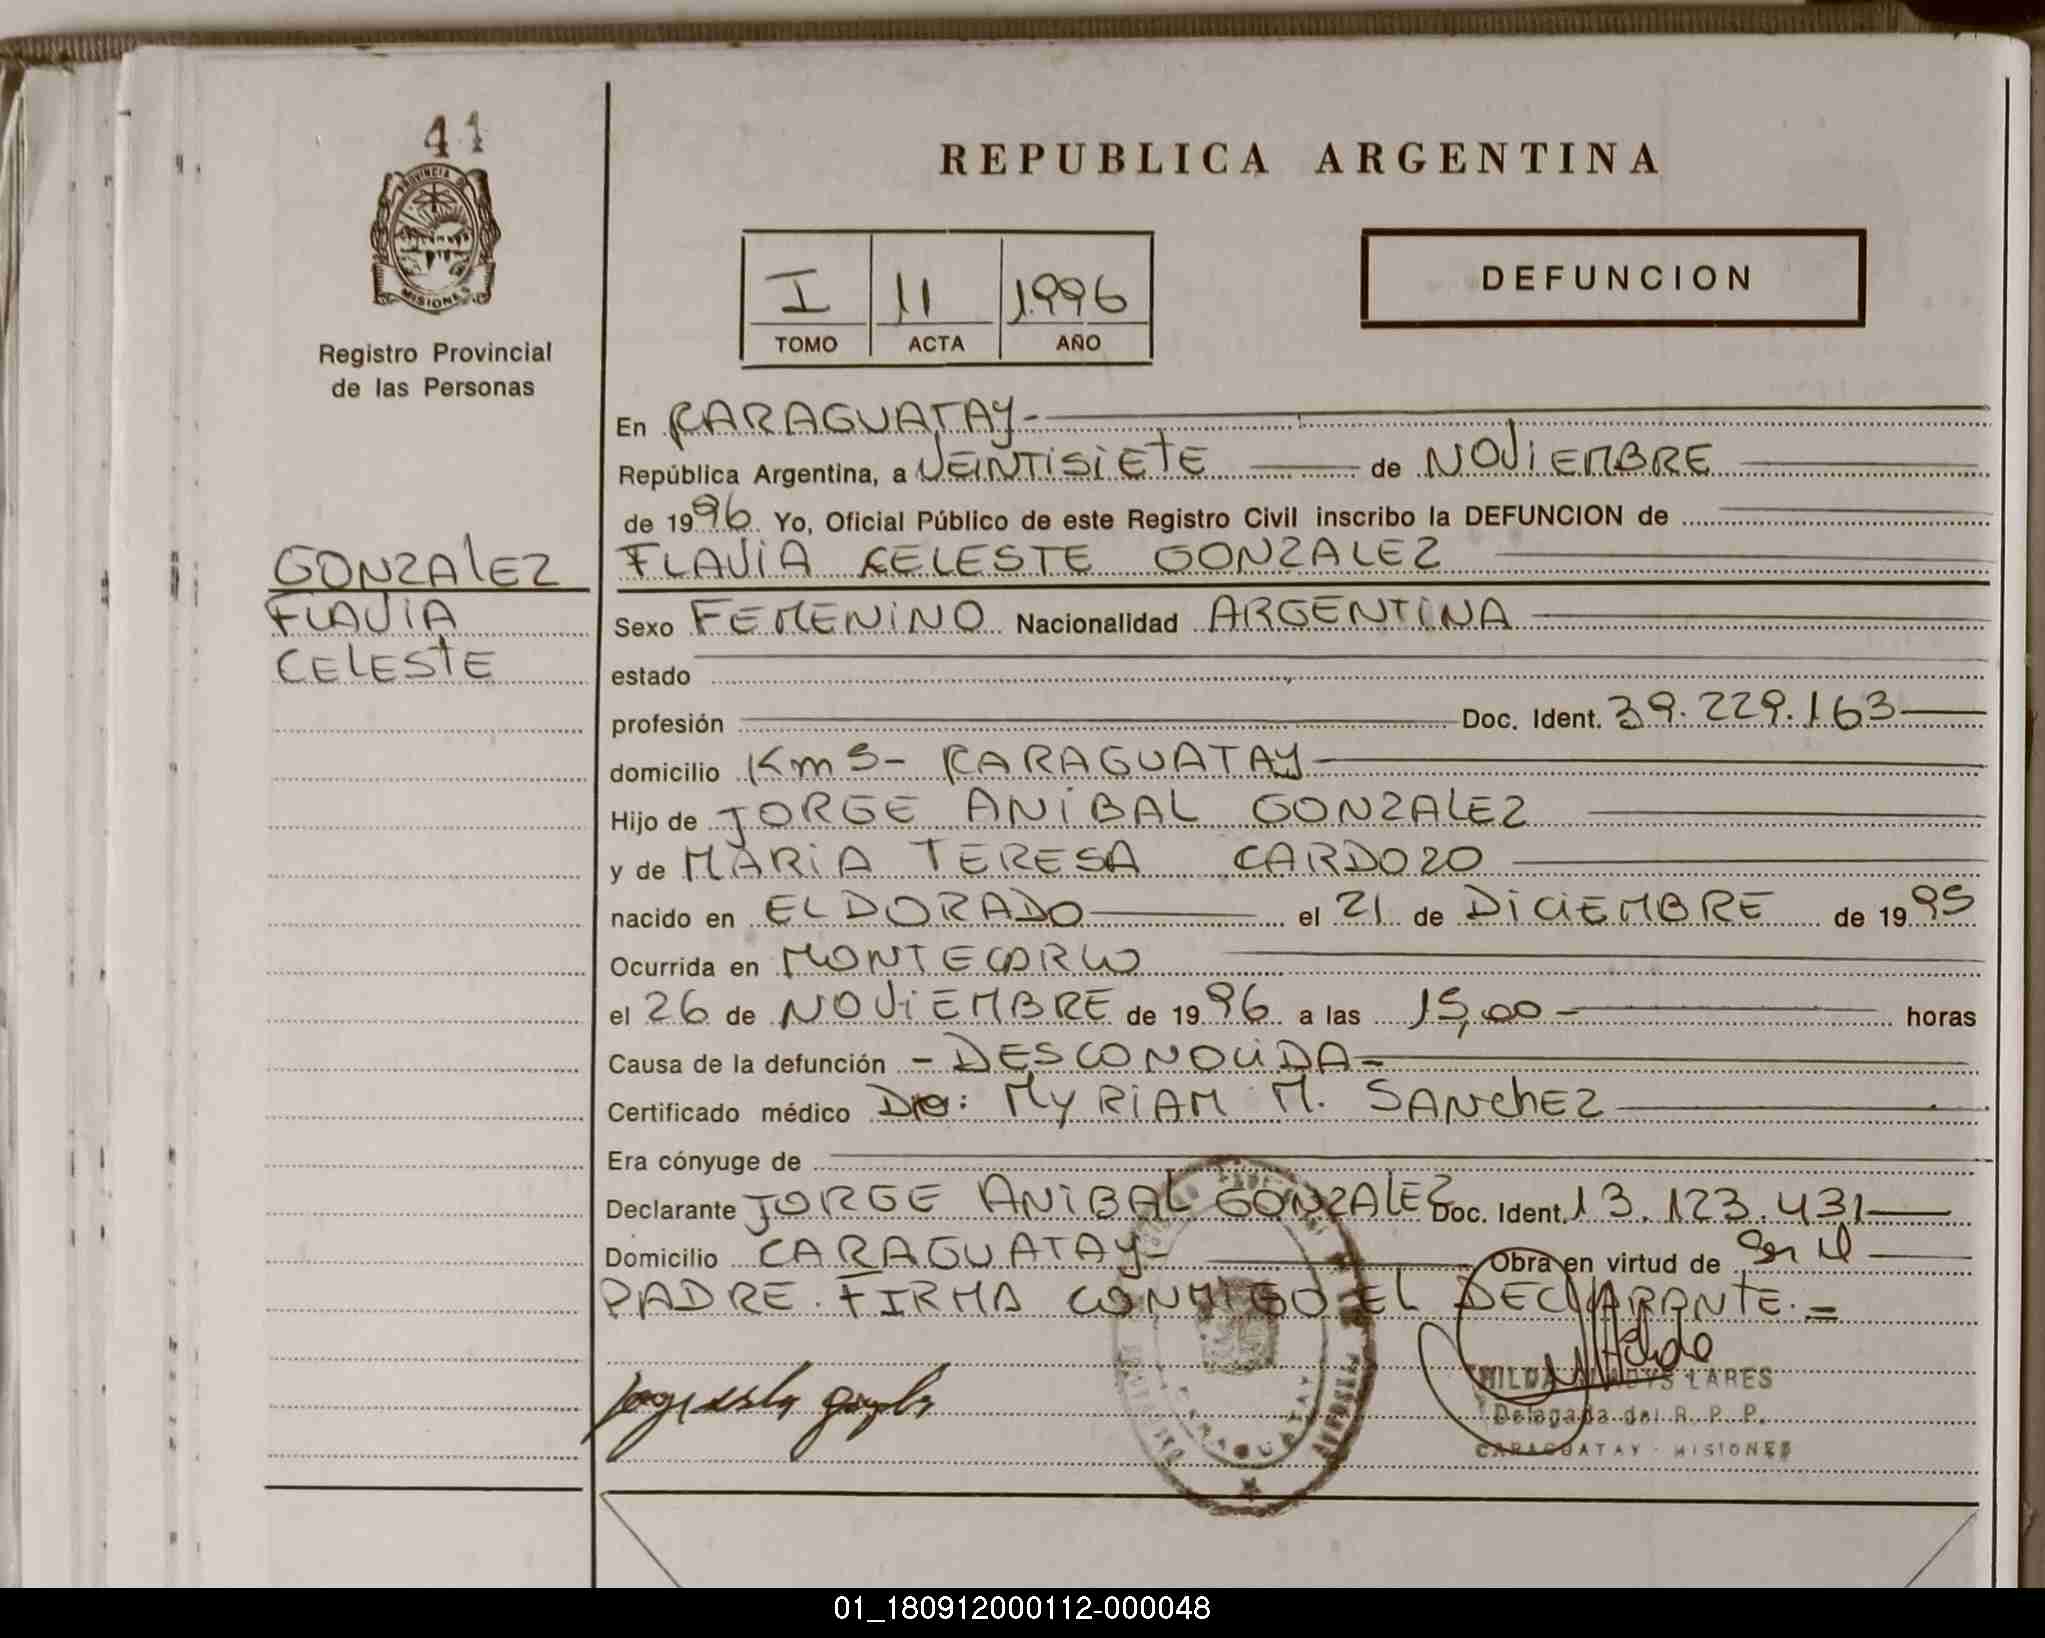 41
PROVINCIA D
MISIONES
Registro Provincial
de las Personas
REPUBLICA ARGENTINA
I 11 1996
TOMO ACTA AÑO
DEFUNCION
En CARAGUATAY-
República Argentina, a VEINTISIETE de NOVIEMBRE
de 1996 Yo, Oficial Público de este Registro Civil inscribo la DEFUNCION de
GONZALEZ
FLAVIA
CELESTE
FLAVIA CELESTE GONZALEZ
Sexo FEMENINO Nacionalidad ARGENTINA
estado
profesión Doc. Ident. 39.229.163
domicilio Km 5- CARAGUATAY
Hijo de JORGE ANIBAL GONZALEZ
y de MARIA TERESA CARDOZO
nacido en ELDORADO el 21 de DICIEMBRE de 1995
Ocurrida en MONTECARLO
el 26 de NOVIEMBRE de 1996 a las 15,00- horas
Causa de la defunción - DESCONOCIDA-
Certificado médico Dra: MYRIAM M. SANCHEZ
Era cónyuge de
Declarante JORGE ANIBAL GONZALEZ Doc. Ident. 13.123.431
Domicilio CARAGUATAY- Obra en virtud de Ser el
PADRE. FIRMA CONMIGO EL DECLARANTE.=
HILDA GLADYS LARES
Delegada del R. P. P.
CARAGUATAY - MISIONES
CARAGUATAY
01_180912000112-000048